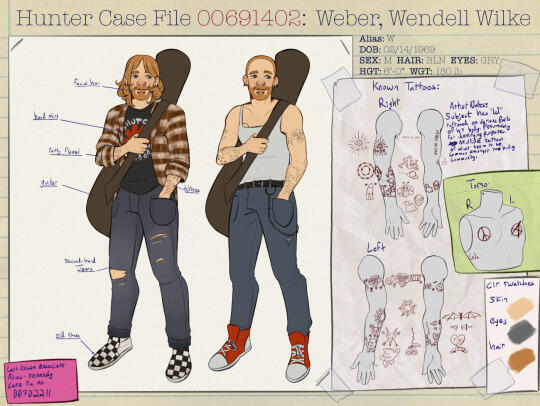 Hunter Case File 00691402: Weber, Wendell Wilke
Alias: W
DOB: 02/14/1969
SEX: M HAIR: BLN EYES: GRY
HGT: 6'-0" WGT: 180 lb
facial hair
band shirt
ratty flannel
guitar
tattoos
second-hand
jeans
old shoes
Last Known Associate
Alias - Kennedy
Case File No.
00702211
Known Tattoos:
Right
Left
Artist Notes:
Subject has "W"
tattooed on various parts
of his body. Presumably
for identifying purposes.
Multiple tattoos
of alias seem to be
common amongst the
community.
Torso:
R L
W
Clr Swatches
Skin
eyes
hair